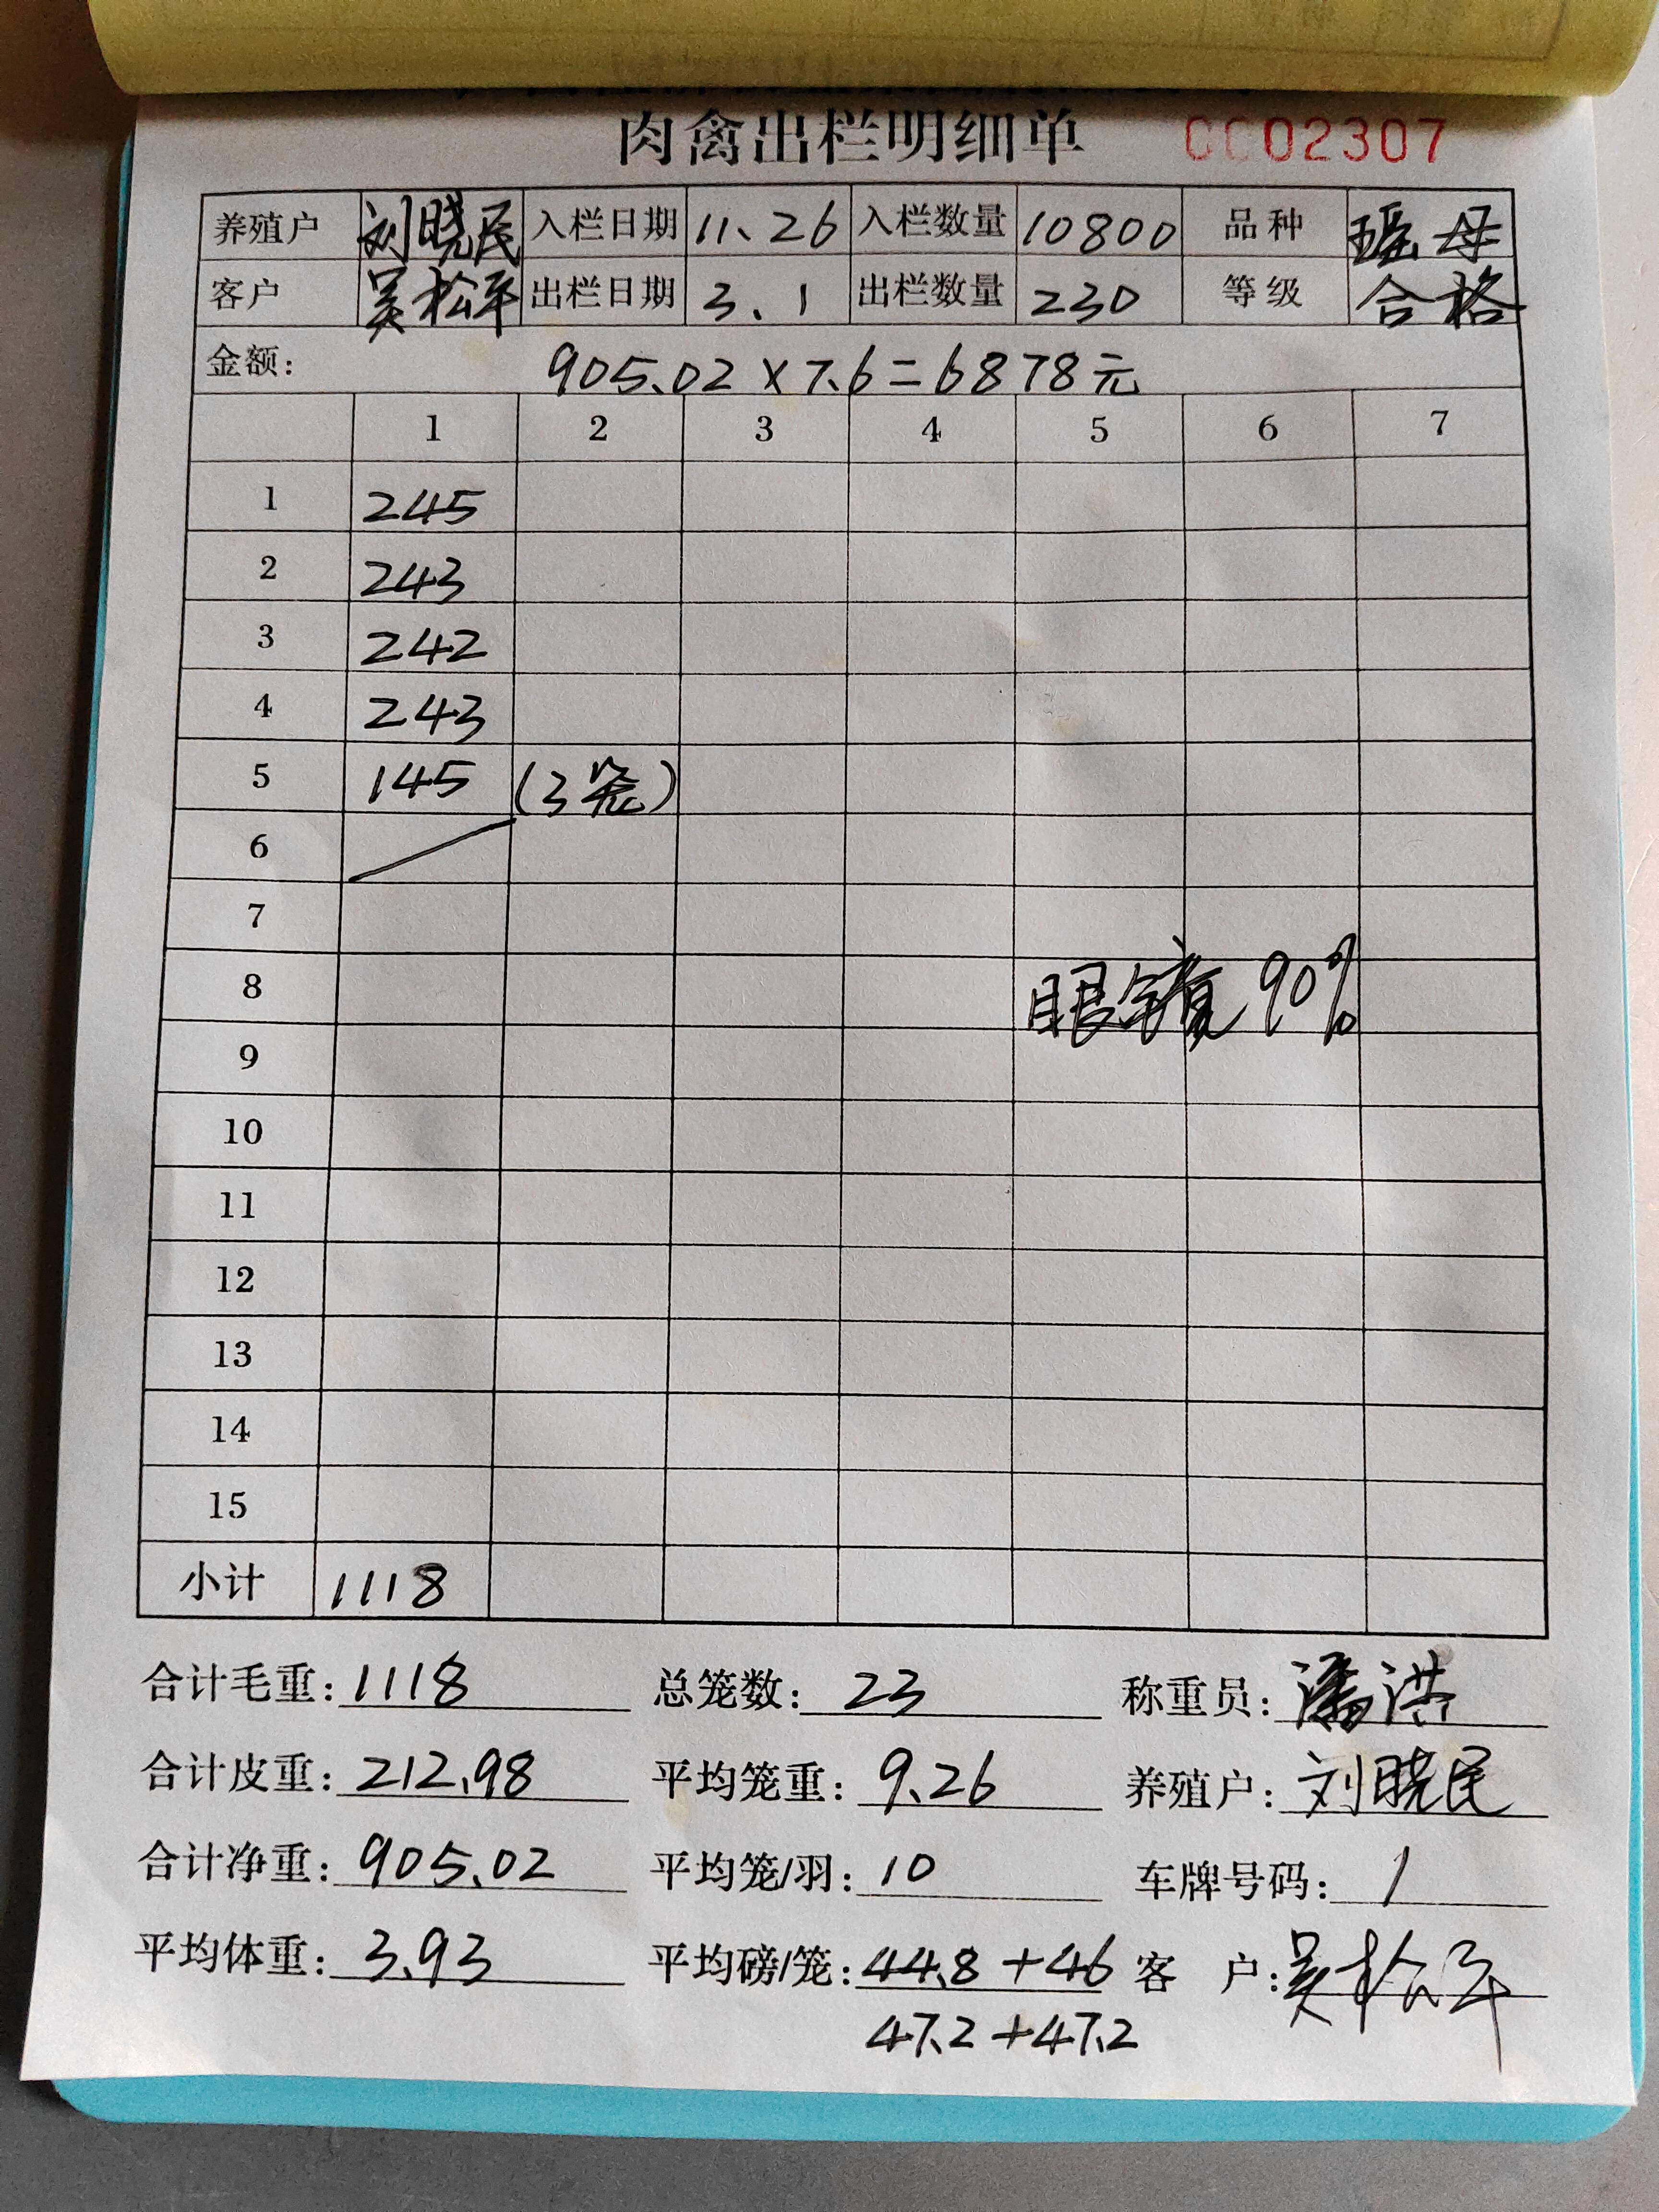 肉禽出栏明细单 0002307
养殖户 刘晓民 入栏日期 11.26 入栏数量 10800 品种 瑶母
客户 吴松平 出栏日期 3.1 出栏数量 230 等级 合格
金额: 905.02×7.6=6878元
1 2 3 4 5 6 7
1 245
2 243
3 242
4 243
5 145 (3笼)
6
7
8 眼镜90%
9
10
11
12
13
14
15
小计 1118
合计毛重: 1118 总笼数: 23 称重员: 潘洪
合计皮重: 212.98 平均笼重: 9.26 养殖户: 刘晓民
合计净重: 905.02 平均笼/羽: 10 车牌号码: /
平均体重: 3.93 平均磅/笼: 44.8+46 客户: 吴松平
47.2+47.2